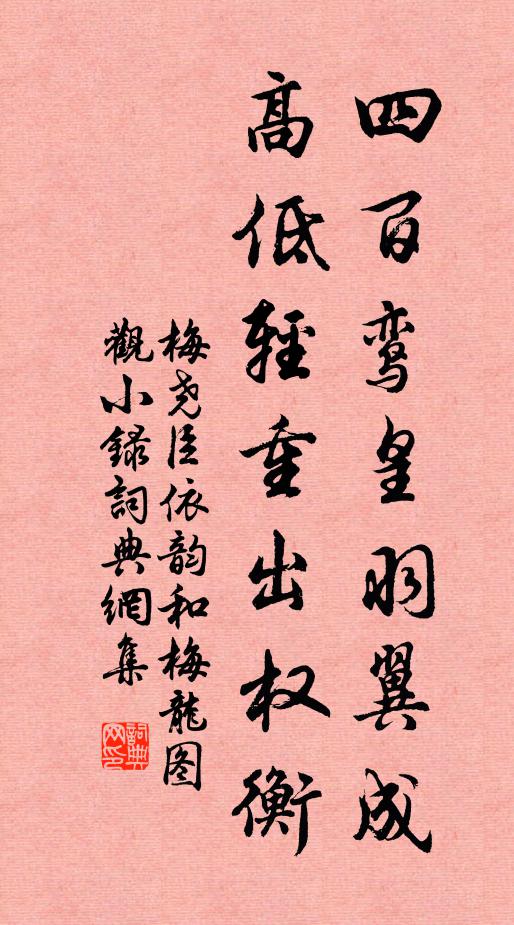 四百鸾皇羽翼成
高低輕重出权衡
梅尧臣依韵和梅龍图
觀小錄詞典網集
詞典网印